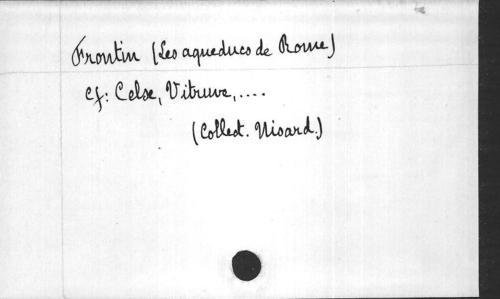 Frontin (Les aqueducs de Rome)
Cf: Celse, Vitruve,....
(Collect. Nisard.)